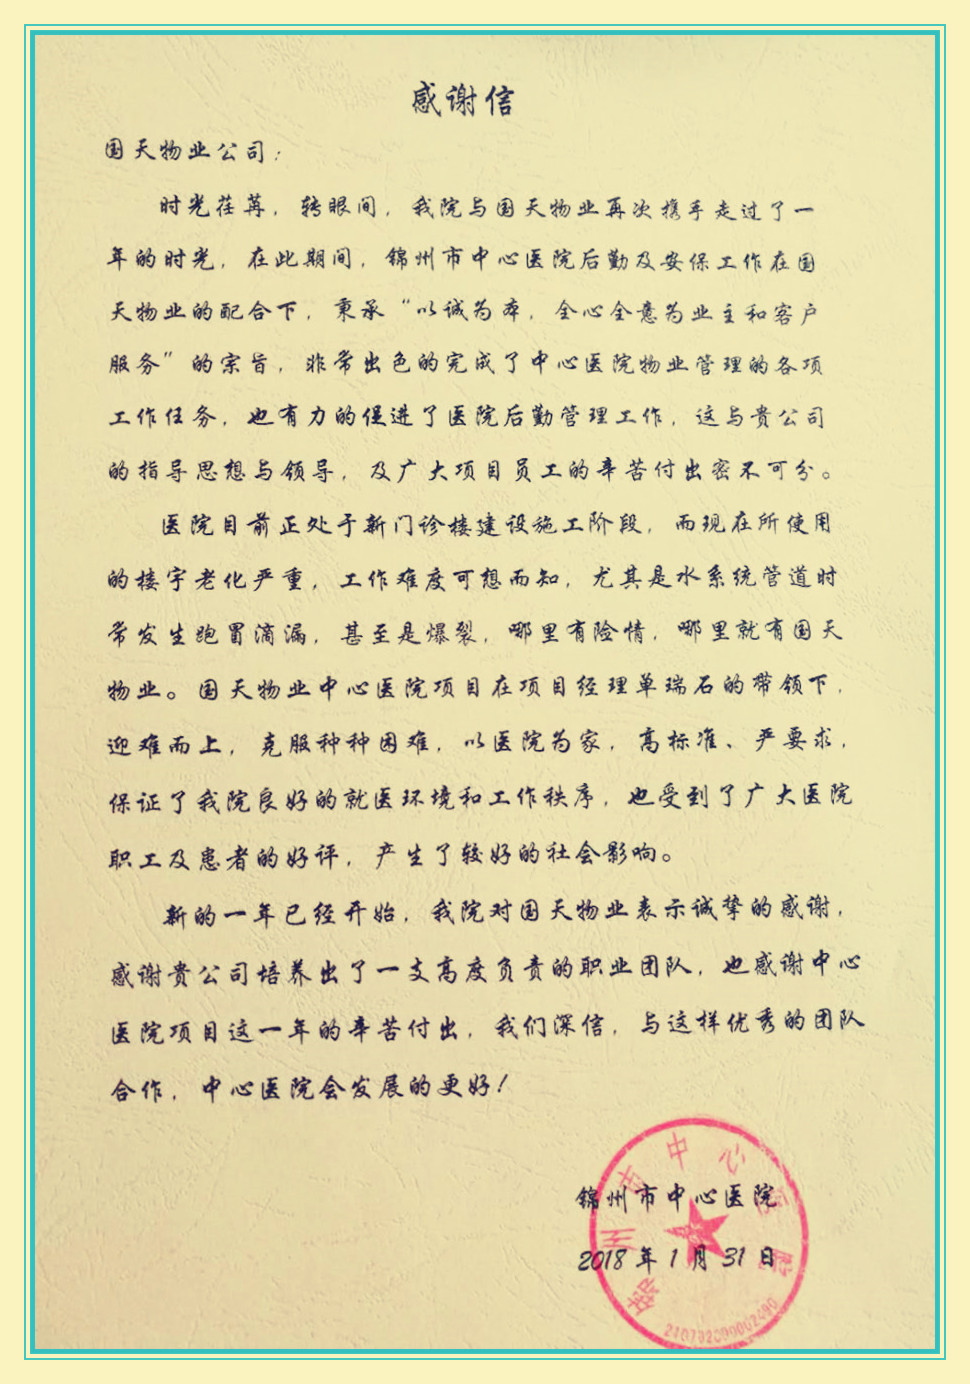 感谢信
国天物业公司：
时光荏苒，转眼间，我院与国天物业再次携手走过了一
年的时光，在此期间，锦州市中心医院后勤及安保工作在国
天物业的配合下，秉承“以诚为本，全心全意为业主和客户
服务”的宗旨，非常出色的完成了中心医院物业管理的各项
工作任务，也有力的促进了医院后勤管理工作，这与贵公司
的指导思想与领导，及广大项目员工的辛苦付出密不可分。
医院目前正处于新门诊楼建设施工阶段，而现在所使用
的楼宇老化严重，工作难度可想而知，尤其是水系统管道时
常发生跑冒滴漏，甚至是爆裂，哪里有险情，哪里就有国天
物业。国天物业中心医院项目在项目经理单瑞石的带领下，
迎难而上，克服种种困难，以医院为家，高标准、严要求，
保证了我院良好的就医环境和工作秩序，也受到了广大医院
职工及患者的好评，产生了较好的社会影响。
新的一年已经开始，我院对国天物业表示诚挚的感谢，
感谢贵公司培养出了一支高度负责的职业团队，也感谢中心
医院项目这一年的辛苦付出，我们深信，与这样优秀的团队
合作，中心医院会发展的更好！
锦州市中心医院
2018年1月31日
锦州市中心医院